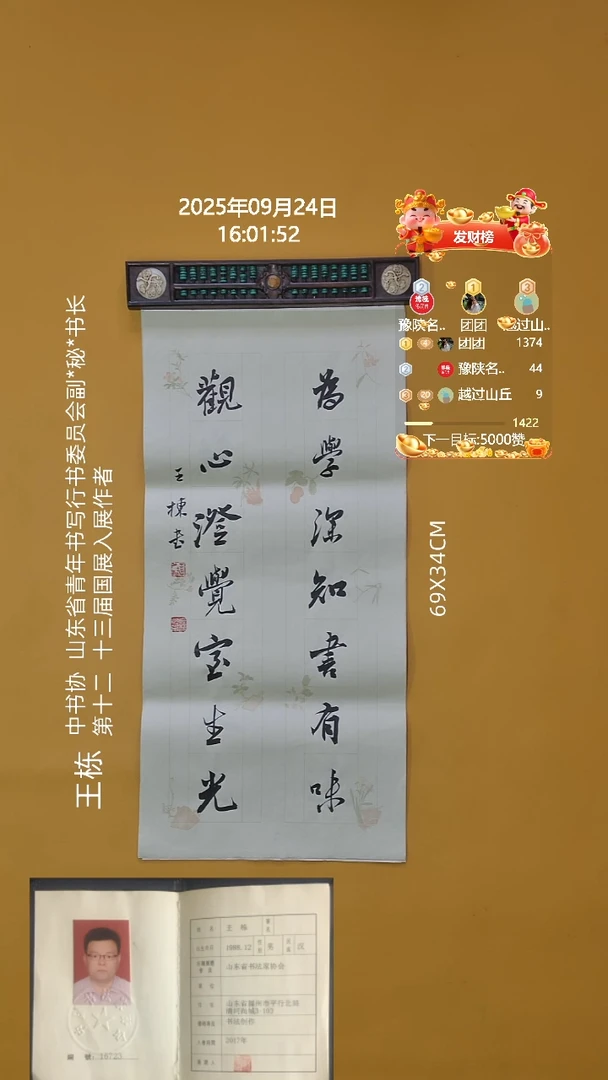 2025年09月24日
16:01:52
发财榜
2
1
3
豫陕名..
团团
越过山..
1
团团
1374
2
豫陕名..
44
3
20
越过山丘
9
1422
下一目标:5000赞
為學深知書有味
觀心澄覺室生光
王棟書
69X34CM
王栋
中书协 山东省青年书写行书委员会副*秘*书长
第十二 十三届国展入展作者
姓名 王栋
1988.12 性别 男 民族 汉
山东省书法家协会
书法创作
2017年
编号：15723